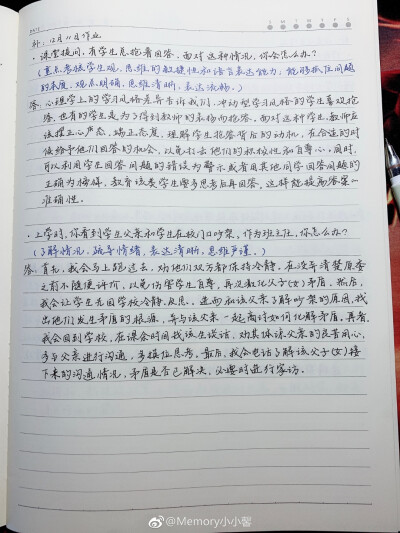 补:12月11日作业
·课堂提问,有学生总抢着回答,面对这种情况,你会怎么办?
(重点考核学生观,思维的敏捷性和语言表达能力;能够抓住问题
的本质,观点明确,思维清晰,表达流畅。)
答:心理学上的学习风格差异告诉我们,冲动型学习风格的学生喜欢抢
答,也有的学生是为了得到教师的表扬而抢答。面对这种学生,教师应
该摆正心态,端正态度,理解学生抢答背后的动机,在合适的时
候给予他们回答的机会,以免打击他们的积极性和自尊心。同时,
可以利用学生回答问题的错误为警示或者用其他同学回答问题的
正确为榜样,教育该类学生要多思考后再回答,这样能提高答案的
准确性。
·上学时,你看到学生父亲和学生在校门口吵架,作为班主任,你怎么办?
(了解情况,疏导情绪,表达清晰,思维严谨。)
答:首先,我会马上跑过去,劝他们双方都保持冷静,在没弄清楚原委
之前不随便评价,以免伤害学生自尊,再次激化父子(女)矛盾。然后,
我会让学生先回学校冷静、反思。进而和该父亲了解吵架的原因,找
出他们发生矛盾的根源,并与该父亲一起商讨如何化解矛盾。再者,
我会回到学校,在课余时间找该生谈话,劝其体谅父亲的良苦用心,
多与父亲进行沟通,多换位思考。最后,我会电话了解该父子(女)接
下来的沟通情况,矛盾是否已解决,必要时进行家访。
@Memory小小馨